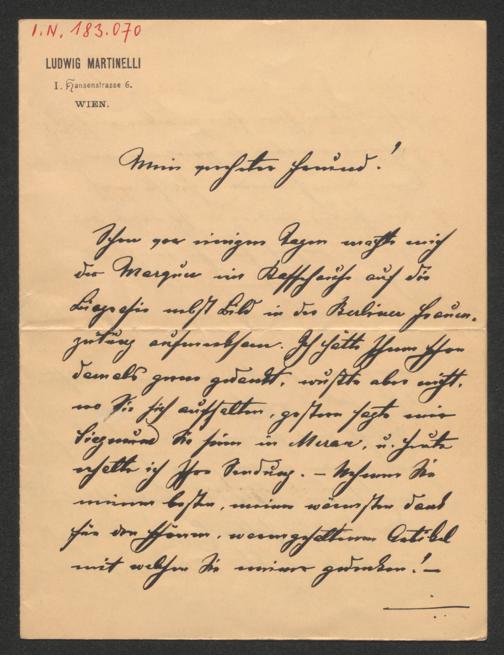 I.N. 183.070
LUDWIG MARTINELLI
I. Hansenstrasse 6.
WIEN.
Mein verehrter Freund!
Schon vor einigen Tagen machte mich
der Marqueur im Kaffehause auf die
Biografie nebst Bild in der Berliner Frauen-
zeitung aufmerksam. Ich hätte Ihnen schon
damals gerne gedankt, wußte aber nicht,
wo Sie sich aufhalten, gestern sagte mir
Siegmund Sie seien in Meran, u. heute
erhalte ich Ihre Sendung. – Nehmen Sie
meinen besten, meinen wärmsten Dank
für den schönen, warmgehaltenen Artikel
mit welchem Sie meiner gedenken! –